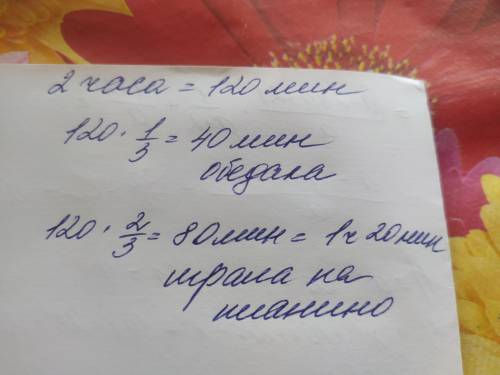 2 часа = 120 мин
120 · 1/3 = 40 мин
обедала
120 · 2/3 = 80 мин = 1ч 20 мин
играла на
пианино